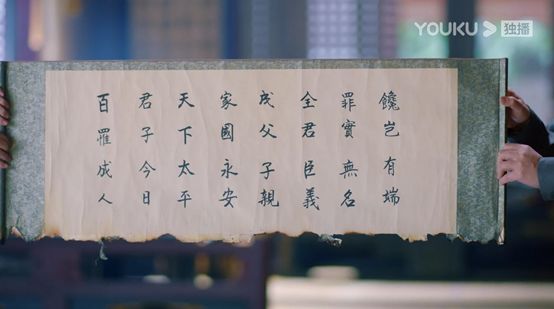 YOUKU 独播
饞岂有端
罪實無名
全君臣義
成父子親
家國永安
天下太平
君子今日
百罹成人